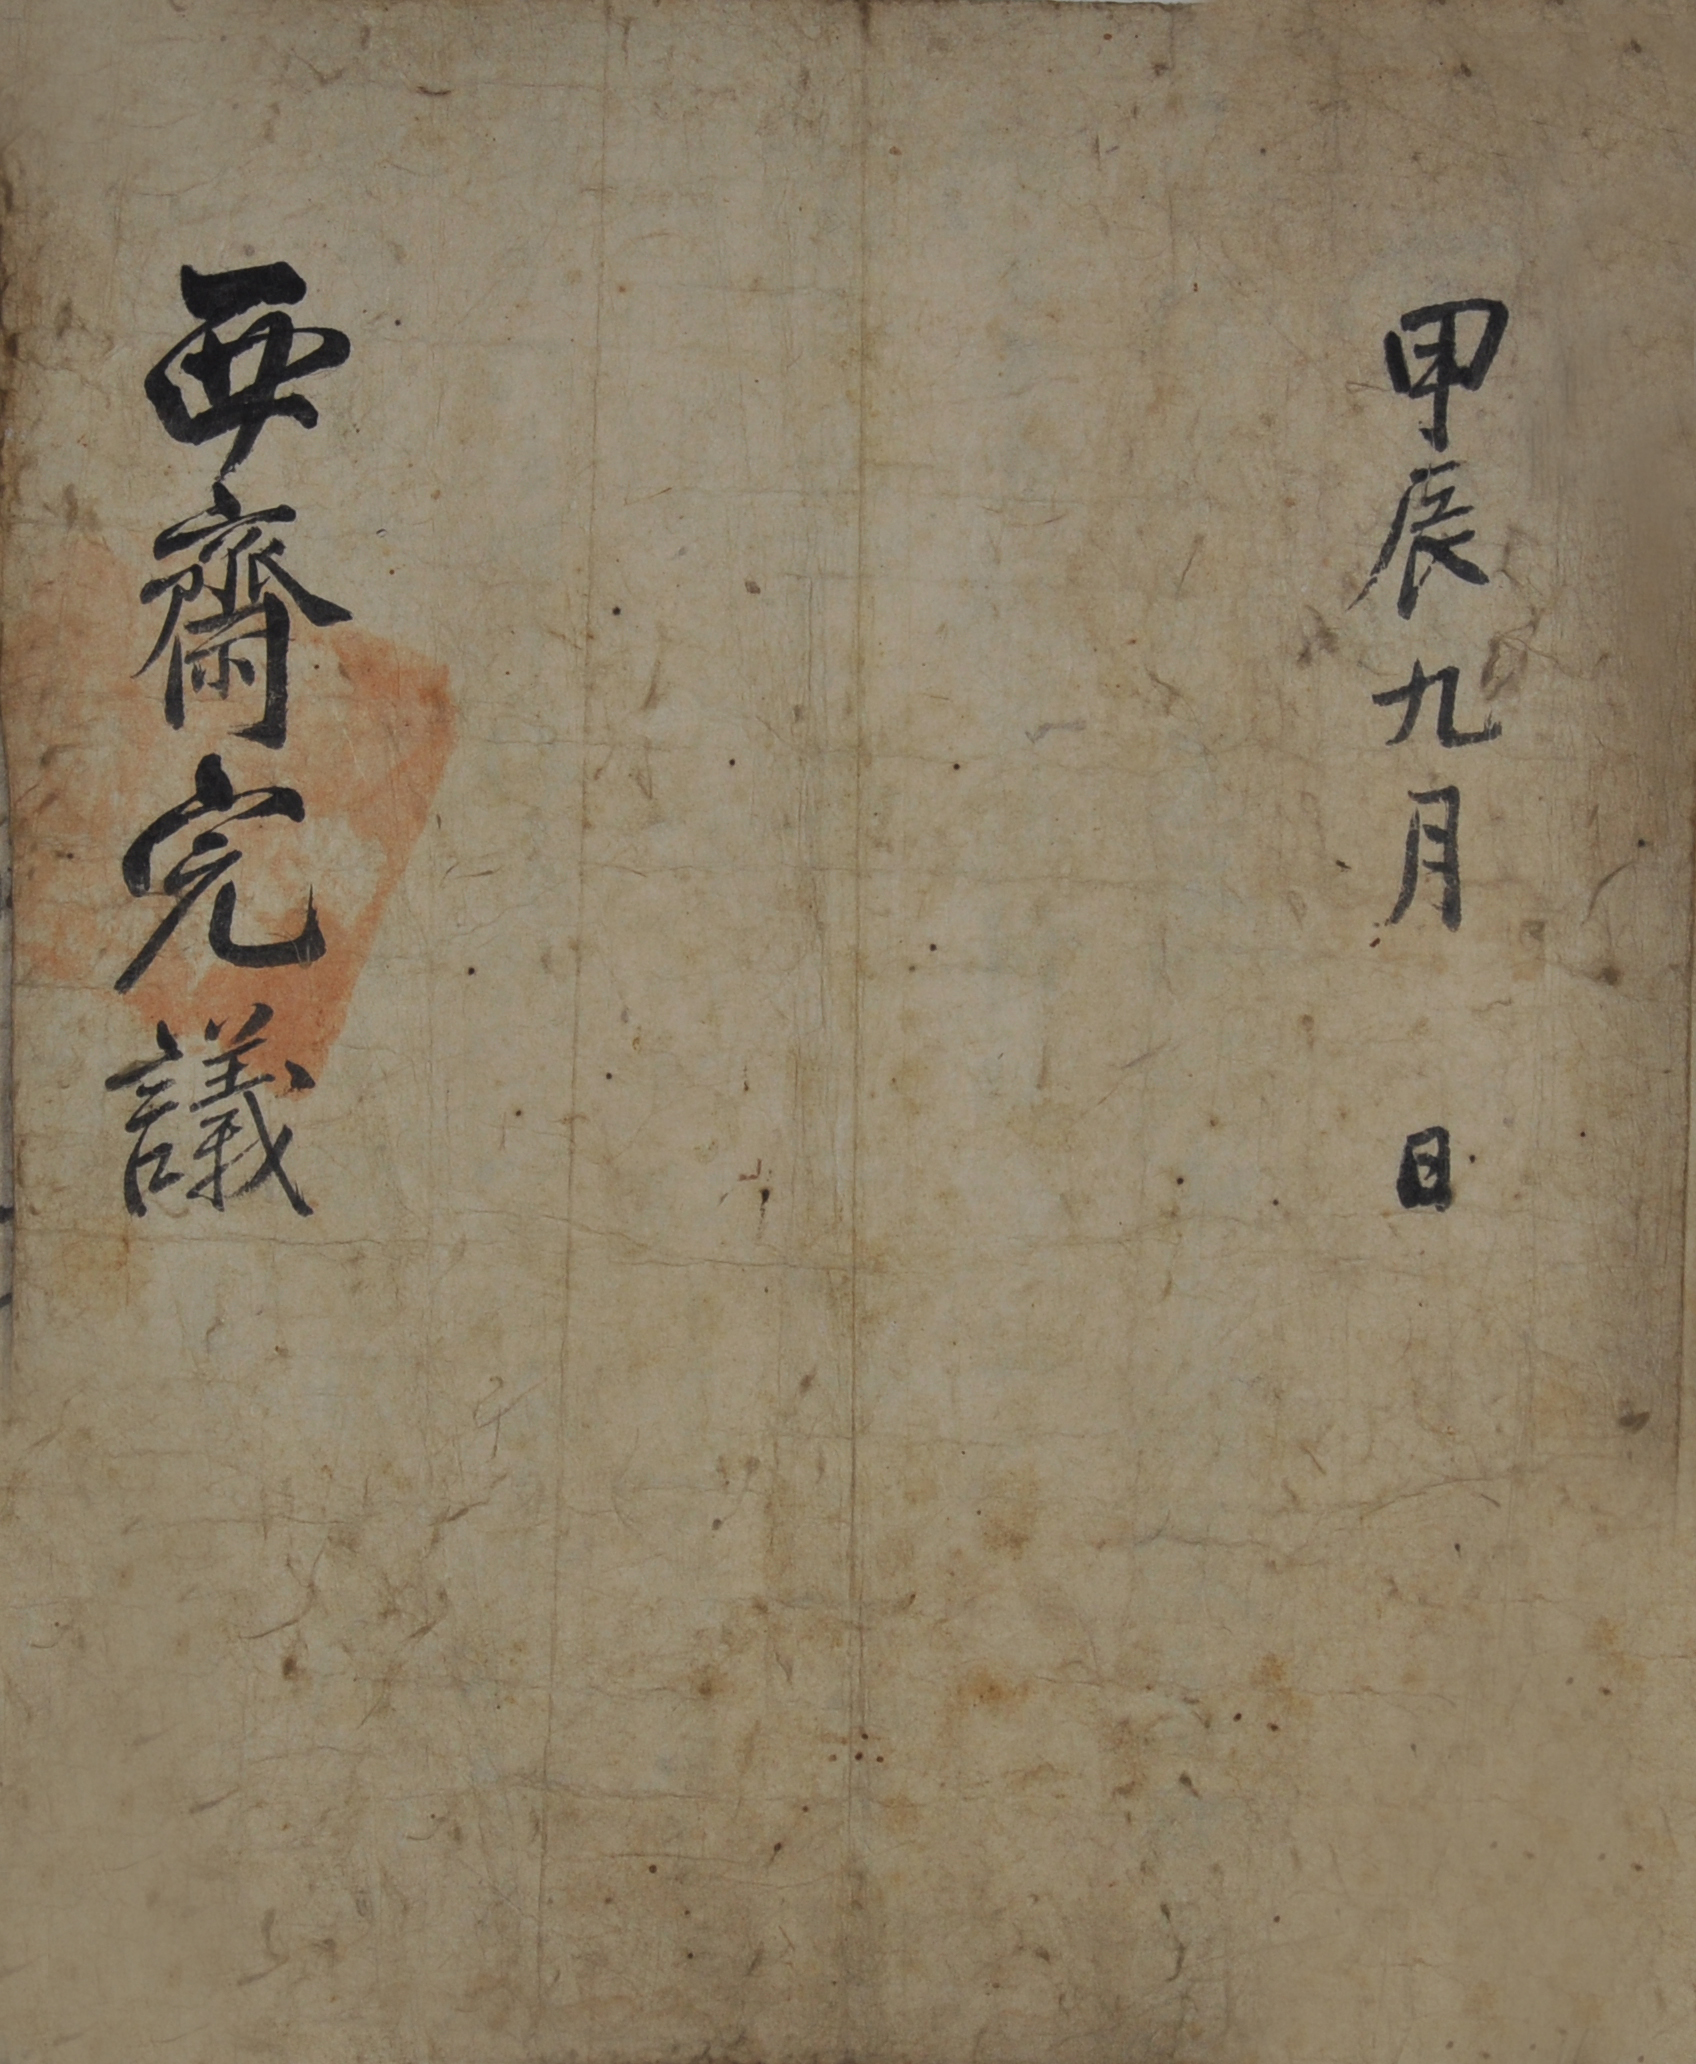 甲辰九月 日
西齋完議